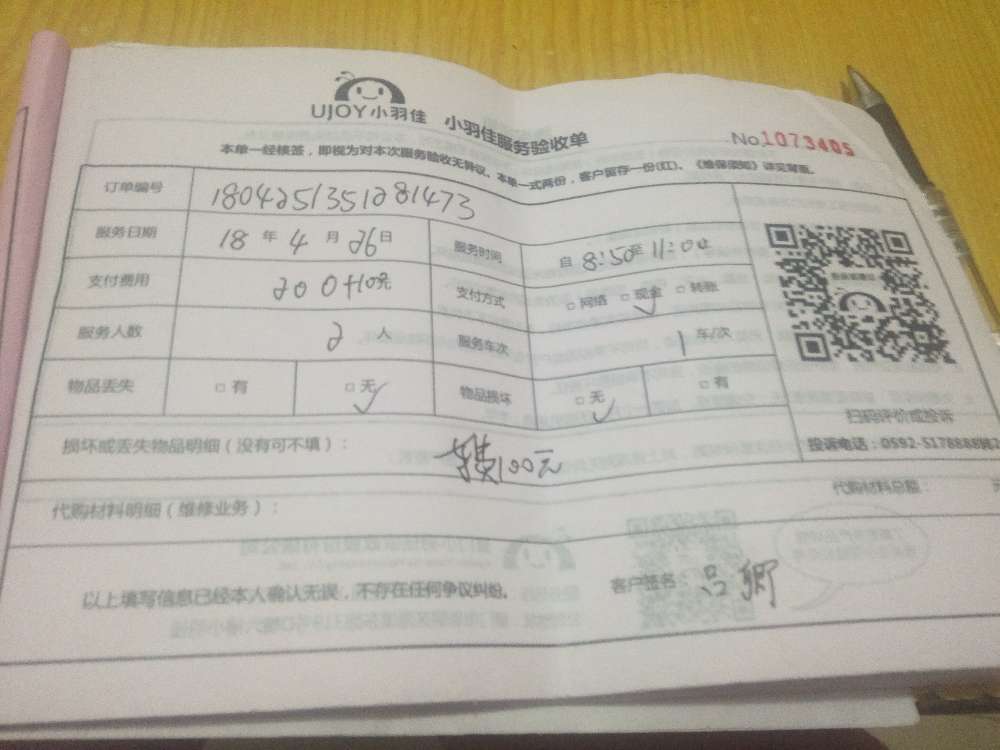 UJOY小羽佳 小羽佳服务验收单
No.1073405
本单一经核签，即视为对本次服务验收无异议。本单一式两份，客户留存一份(红)。《维保须知》详见背面。
订单编号 1804251351281473
服务日期 18 年 4 月 26 日 服务时间 自 8:50 至 11:00
支付费用 200+10元 支付方式 □网络 □现金 ✓ □转账
服务人数 2 人 服务车次 1 车/次
物品丢失 □有 □无 ✓ 物品损坏 □无 ✓ □有
扫码评价或投诉
投诉电话：0592-5178888
损坏或丢失物品明细（没有可不填）： 100元
代购材料明细（维修业务）： 代购材料总额：
以上填写信息已经本人确认无误，不存在任何争议纠纷。 客户签名：